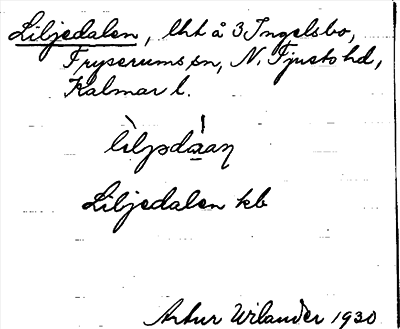 Liljedalen, lht å 3 Ingelsbo,
Fryserums sn, N. Tjusts hd,
Kalmar l.
Liljedalen kb
Artur Wilander 1930